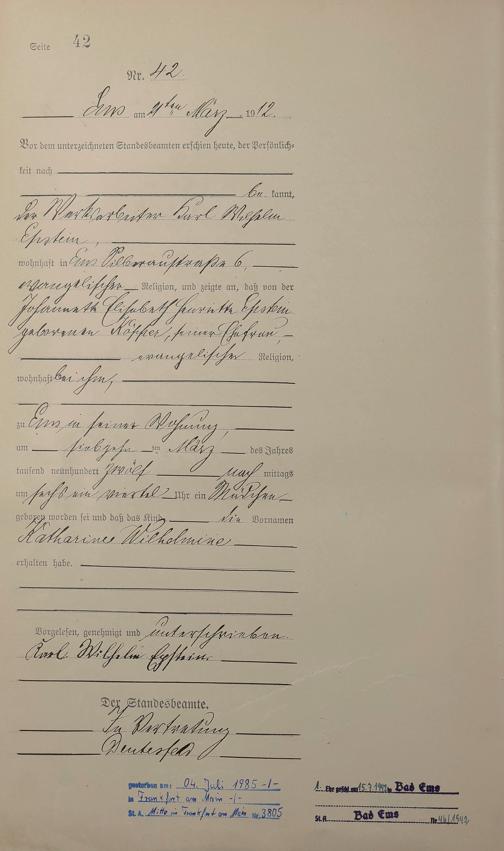 Seite 42
Nr. 42.
Ems am ten März 1912.
Vor dem unterzeichneten Standesbeamten erschien heute, der Persönlich-
keit nach
be kannt,
der Werksarbeiter Karl Wilhelm
Epstein,
wohnhaft in Ems Silberaustraße 6,
evangelischer Religion, und zeigte an, daß von der
Johannette Elisabeth Henriette Epstein
geborenen seiner Ehefrau,
evangelischer Religion,
wohnhaft bei ihm,
zu Ems in seiner Wohnung,
am siebzehn März des Jahres
tausend neunhundert zwölf nach mittags
um sechs ein viertel Uhr ein Mädchen
geboren worden sei und daß das Kind die Vornamen
Katharine Wilhelmine
erhalten habe.
Vorgelesen, genehmigt und unterschrieben
Karl Wilhelm Epstein
Der Standesbeamte.
In Vertretung
gestorben am: 04. Juli 1985 -1-
in Frankfurt am Main -1-
St. A. Mitte in Frankfurt am Main Nr. 3805
1. Ehe geschl. am in Bad Ems
St.A. Bad Ems Nr.